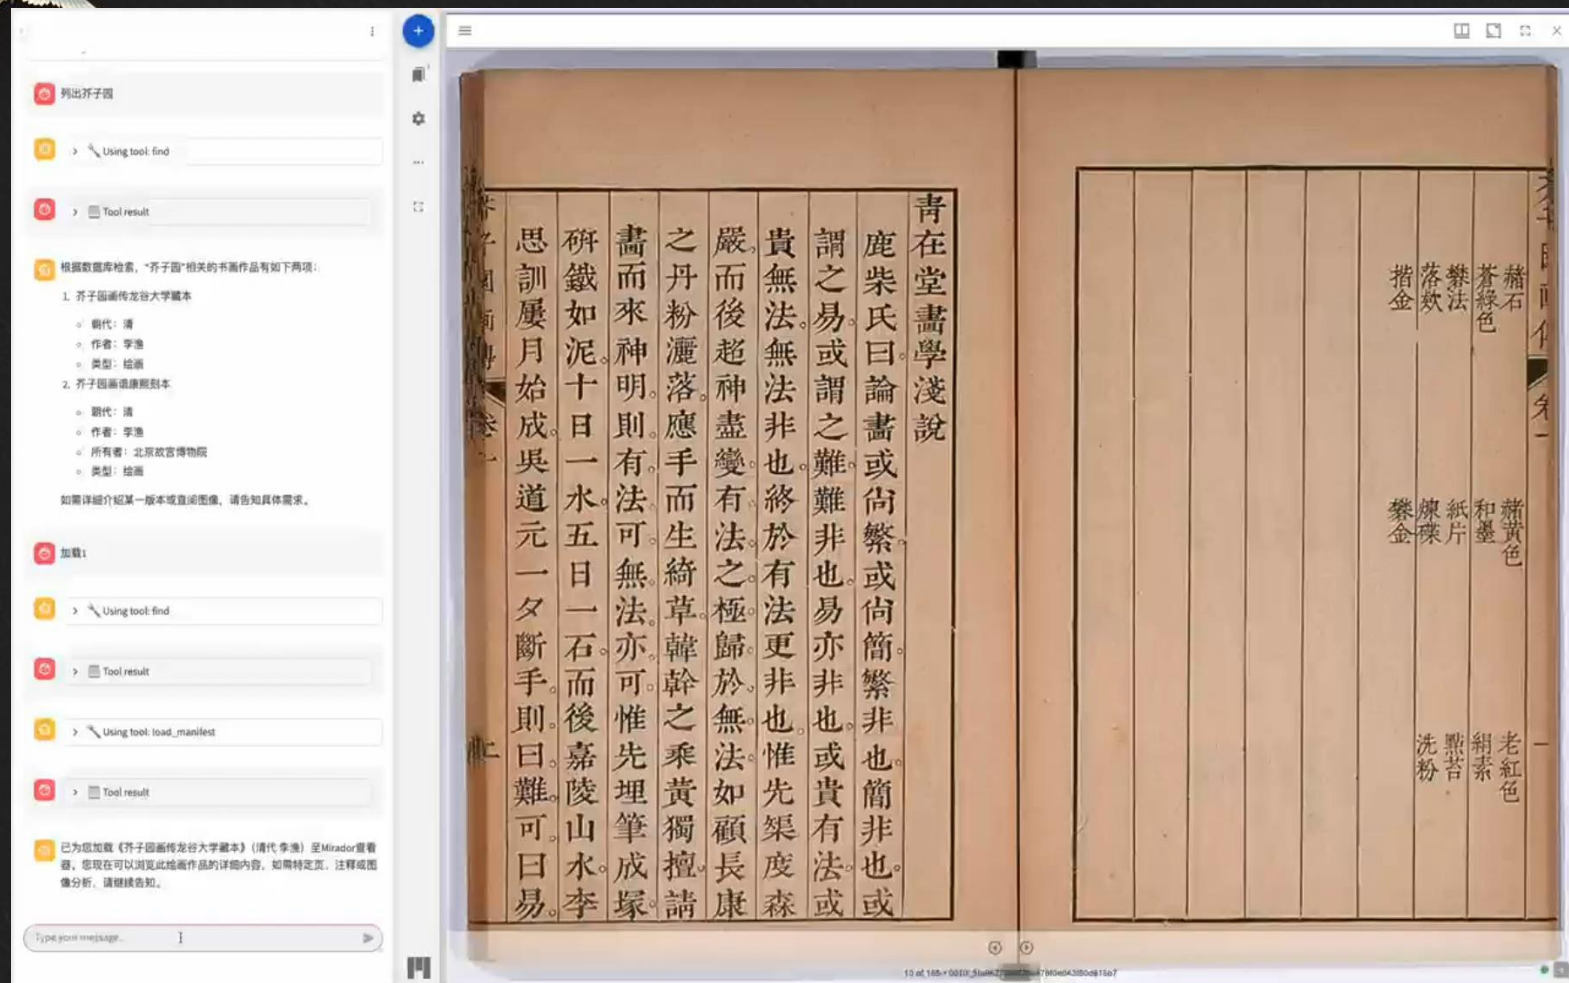 列出芥子园
Using tool: find
Tool result
根据数据库检索，“芥子园”相关的书画作品有如下两项：
1. 芥子园画传龙谷大学藏本
朝代：清
作者：李渔
类型：绘画
2. 芥子园画谱康熙刻本
朝代：清
作者：李渔
所有者：北京故宫博物院
类型：绘画
如需详细介绍某一版本或查阅图像，请告知具体需求。
加载1
Using tool: find
Tool result
Using tool: load_manifest
Tool result
已为您加载《芥子园画传龙谷大学藏本》（清代 李渔）至Mirador查看
器。您现在可以浏览此绘画作品的详细内容，如需特定页、注释或图
像分析，请继续告知。
Type your message...
赭石 赭黃色 老紅色
蒼綠色 和墨 絹素
礬法 紙片 點苔
落欵 煉碟 洗粉
揩金 礬金
青在堂畵學淺說
鹿柴氏曰。論畵或尙繁。或尙簡。繁非也。簡非也。或
謂之易。或謂之難。難非也。易亦非也。或貴有法。或
貴無法。無法非也。終於有法更非也。惟先榘度森
嚴。而後超神盡變。有法之極。歸於無法。如顧長康
之丹粉灑落。應手而生綺草。韓幹之乘黃獨擅。請
畵而來神明。則有法可。無法亦可。惟先埋筆成塚。
硏鐵如泥。十日一水。五日一石。而後嘉陵山水。李
思訓屢月始成。吳道元一夕斷手。則曰難。可曰易。
10 of 165